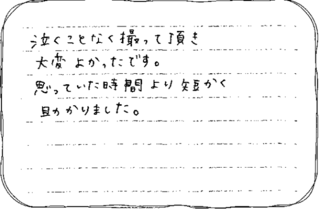 泣くことなく撮って頂き
大変よかったです。
思っていた時間より短かく
助かりました。